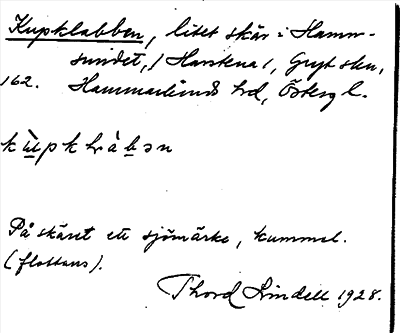 Kupklabben, litet skär i Hamn-
sundet, /Harstena/, Gryt skn,
162. Hammarkinds hrd, Östergl.
På skäret ett sjömärke, kummel.
(flottans).
Thord Lindell 1928.